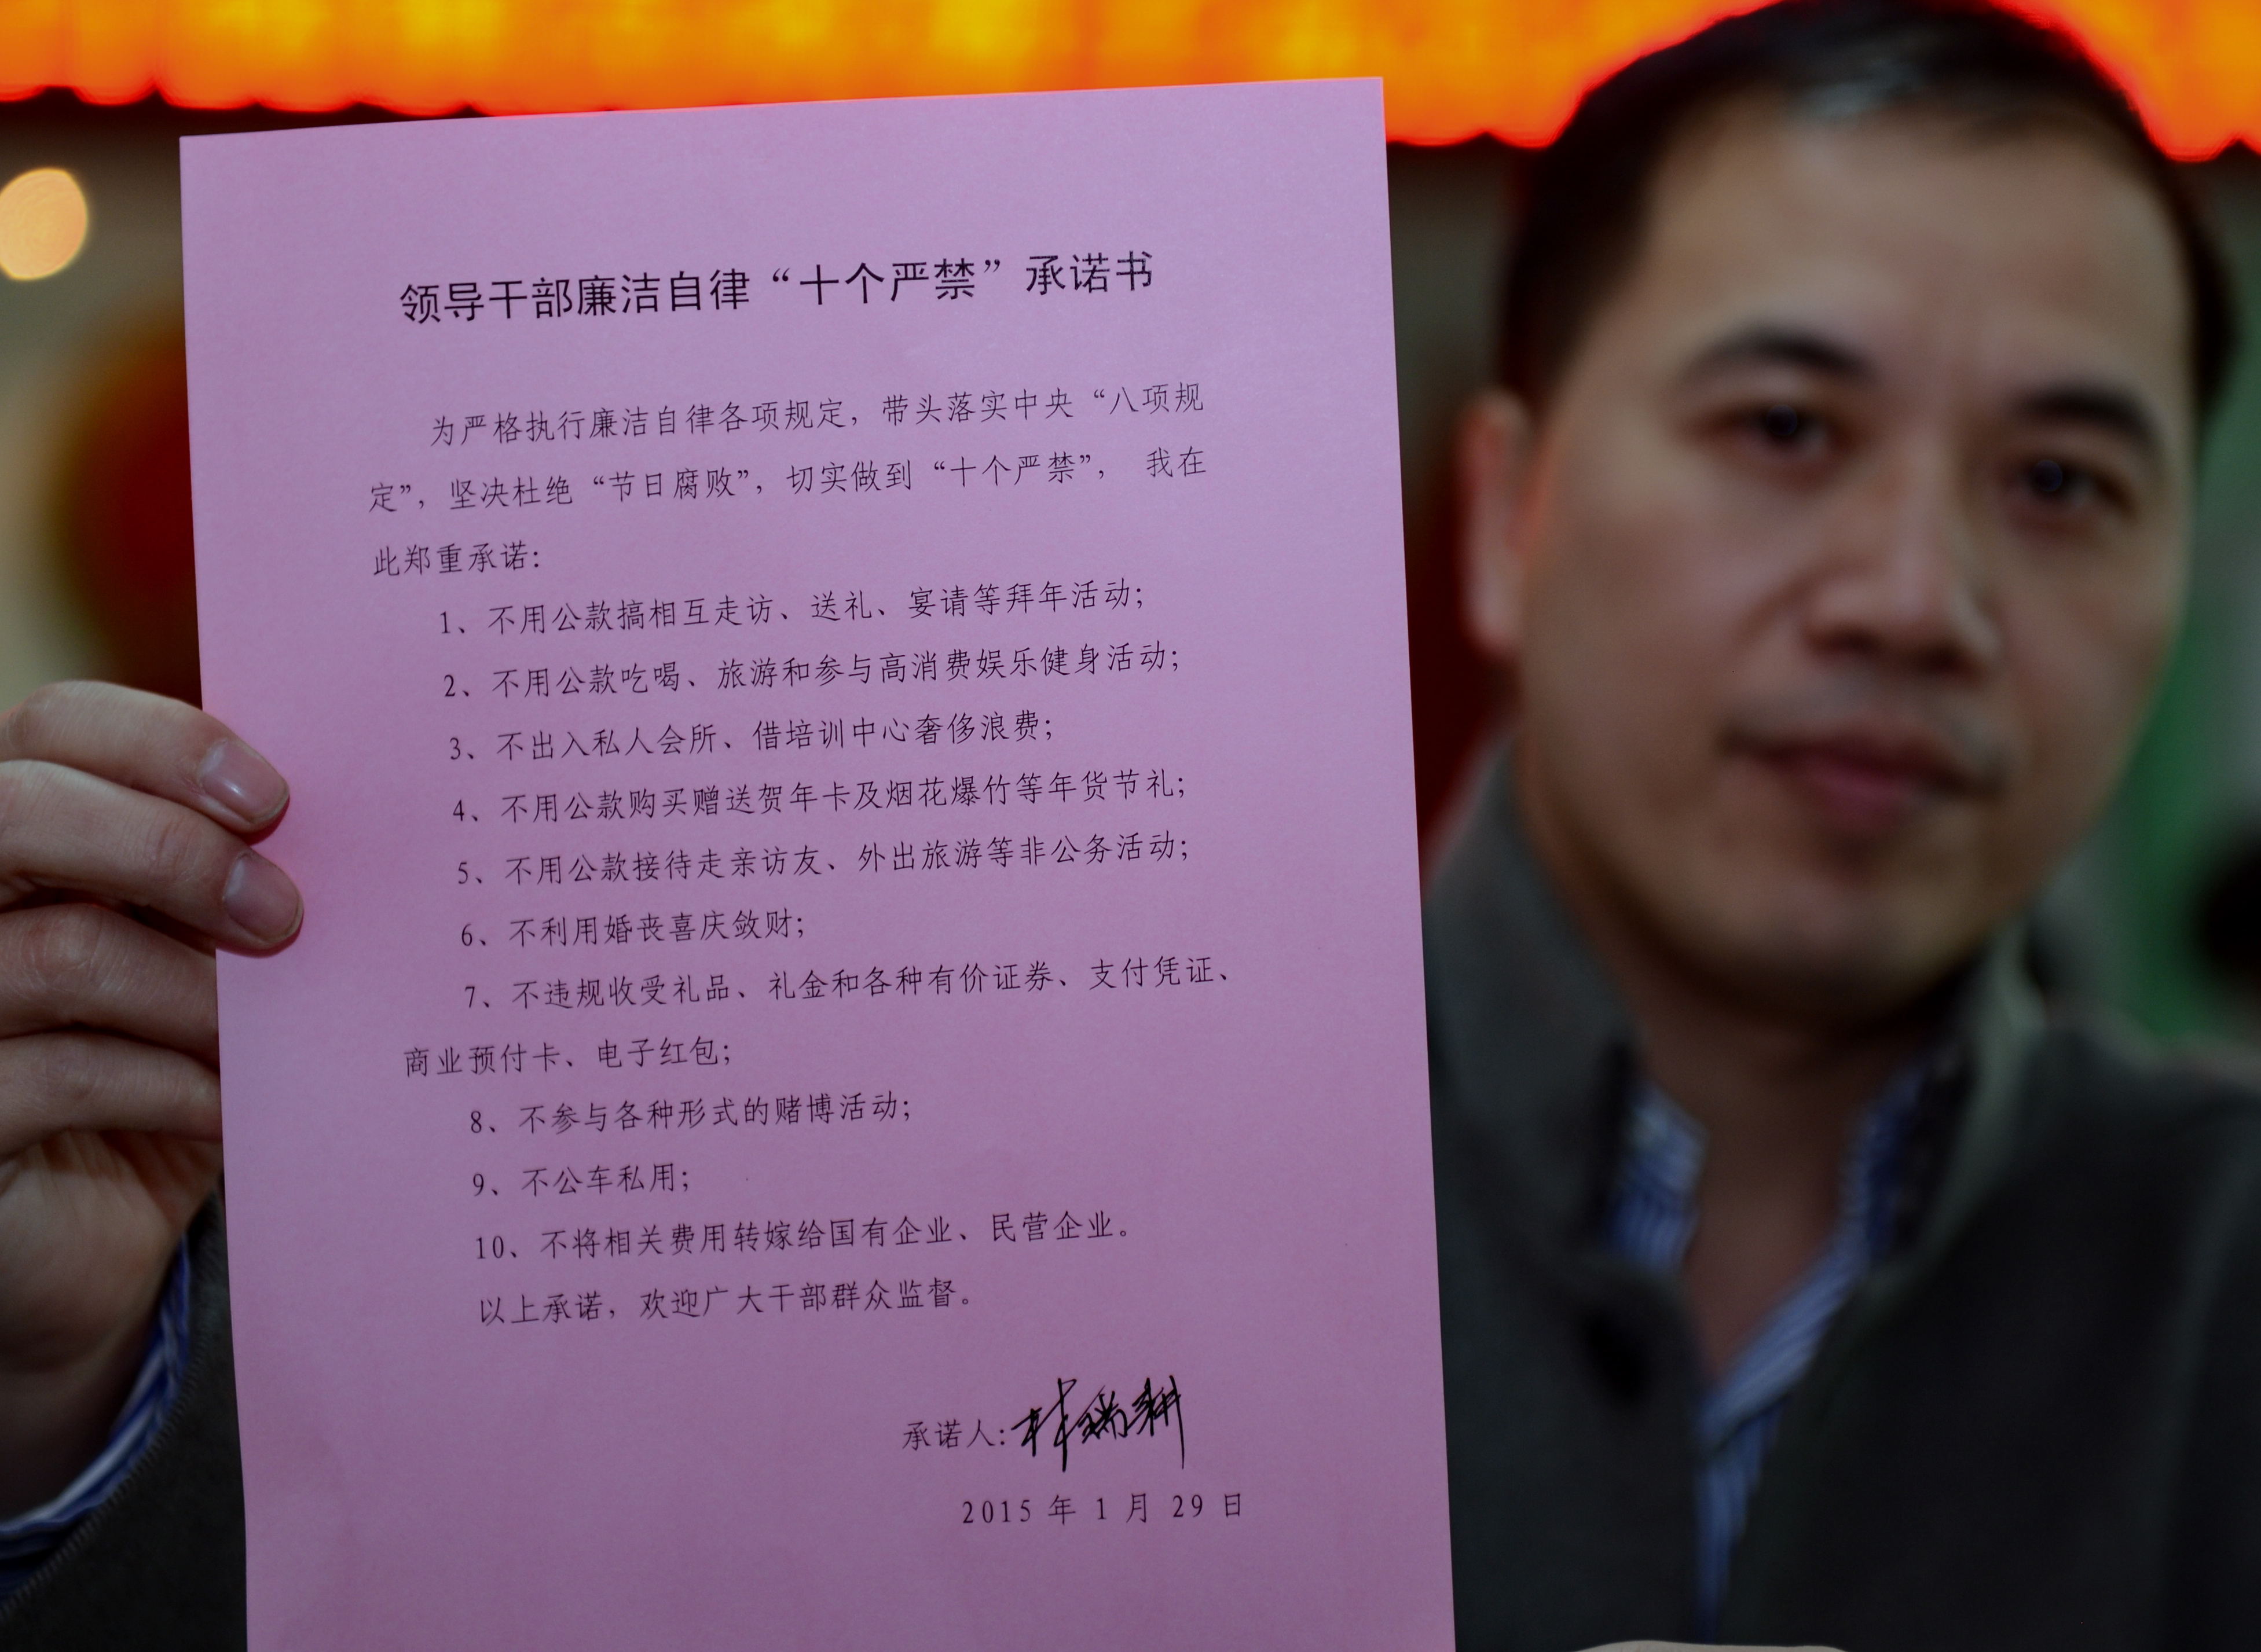 领导干部廉洁自律“十个严禁”承诺书
为严格执行廉洁自律各项规定，带头落实中央“八项规
定”，坚决杜绝“节日腐败”，切实做到“十个严禁”， 我在
此郑重承诺：
1、不用公款搞相互走访、送礼、宴请等拜年活动；
2、不用公款吃喝、旅游和参与高消费娱乐健身活动；
3、不出入私人会所、借培训中心奢侈浪费；
4、不用公款购买赠送贺年卡及烟花爆竹等年货节礼；
5、不用公款接待走亲访友、外出旅游等非公务活动；
6、不利用婚丧喜庆敛财；
7、不违规收受礼品、礼金和各种有价证券、支付凭证、
商业预付卡、电子红包；
8、不参与各种形式的赌博活动；
9、不公车私用；
10、不将相关费用转嫁给国有企业、民营企业。
以上承诺，欢迎广大干部群众监督。
承诺人：林瑞耕
2015 年 1 月 29 日